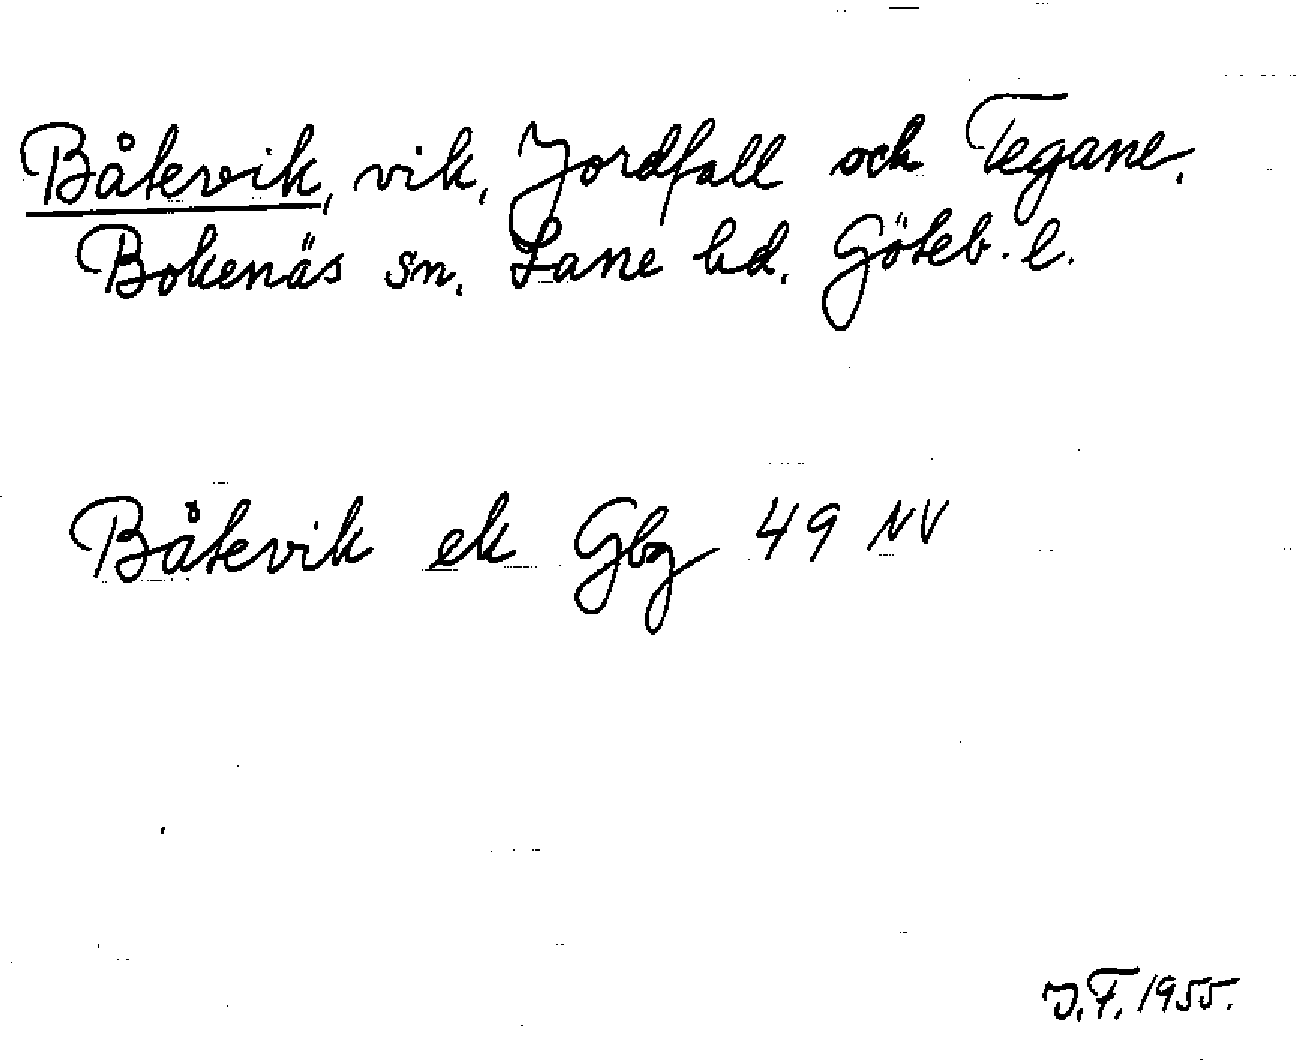 Båtevik, vik, Jordfall och Tegane.
Bokenäs sn. Lane hd. Göteb. l.
Båtevik ek Gbg 49 NV
J.F. 1955.